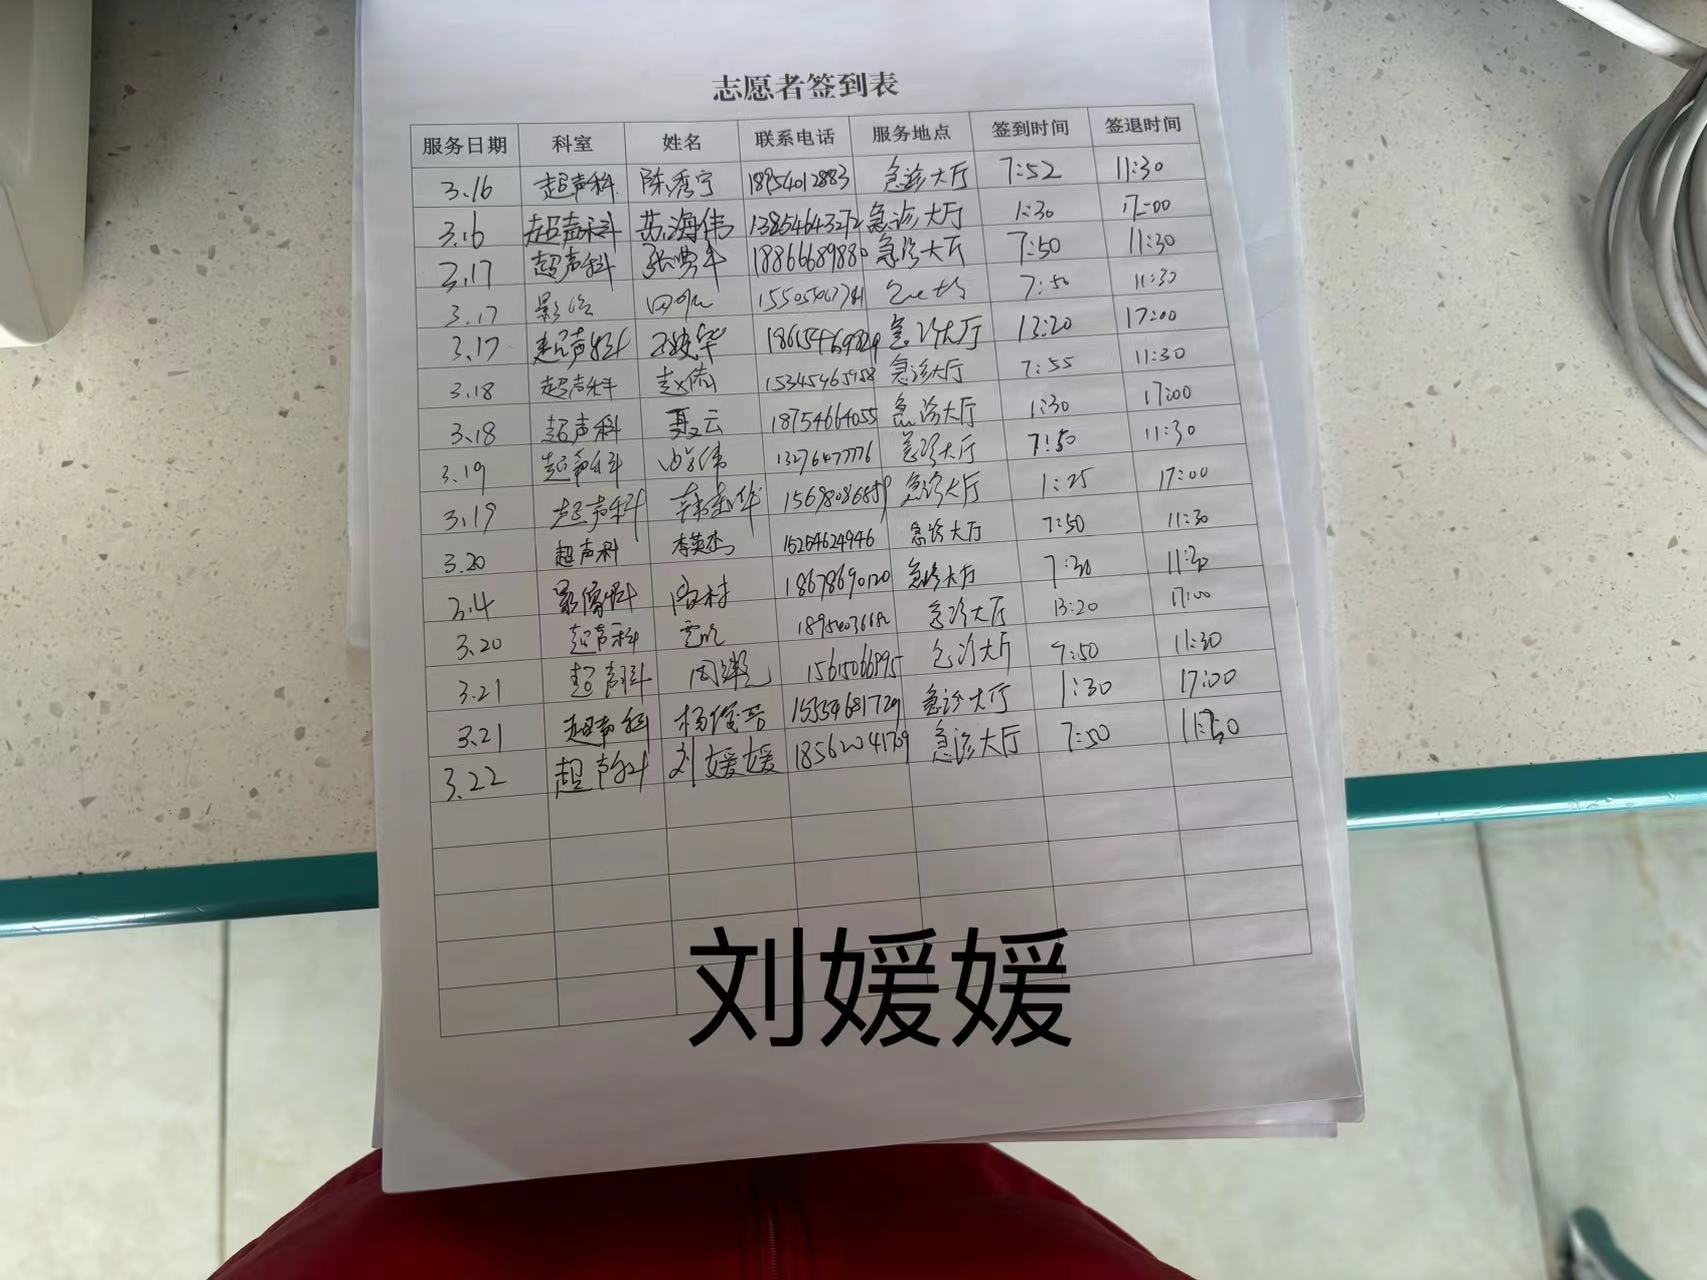 志愿者签到表
服务日期 科室 姓名 联系电话 服务地点 签到时间 签退时间
3.16 超声科 陈秀宁 18954012883 急诊大厅 7:52 11:30
3.16 超声科 苏海伟 13854643272 急诊大厅 1:30 17:00
3.17 超声科 18866689880 急诊大厅 7:50 11:30
3.17 影像 7:50 11:30
3.17 超声科 急诊大厅 13:20 17:00
3.18 超声科 15345465958 急诊大厅 7:55 11:30
3.18 超声科 聂云 18754664055 急诊大厅 1:30 17:00
3.19 超声科 13276477776 急诊大厅 7:50 11:30
3.19 超声科 15698086859 急诊大厅 1:25 17:00
3.20 超声科 李英杰 15254624946 急诊大厅 7:50 11:30
3.4 影像科 18678690120 急诊大厅 7:30 11:30
3.20 超声科 急诊大厅 13:20 17:00
3.21 超声科 15615066995 急诊大厅 7:50 11:30
3.21 超声科 15554681729 急诊大厅 1:30 17:00
3.22 超声科 刘媛媛 18562041709 急诊大厅 7:50 11:30
刘媛媛